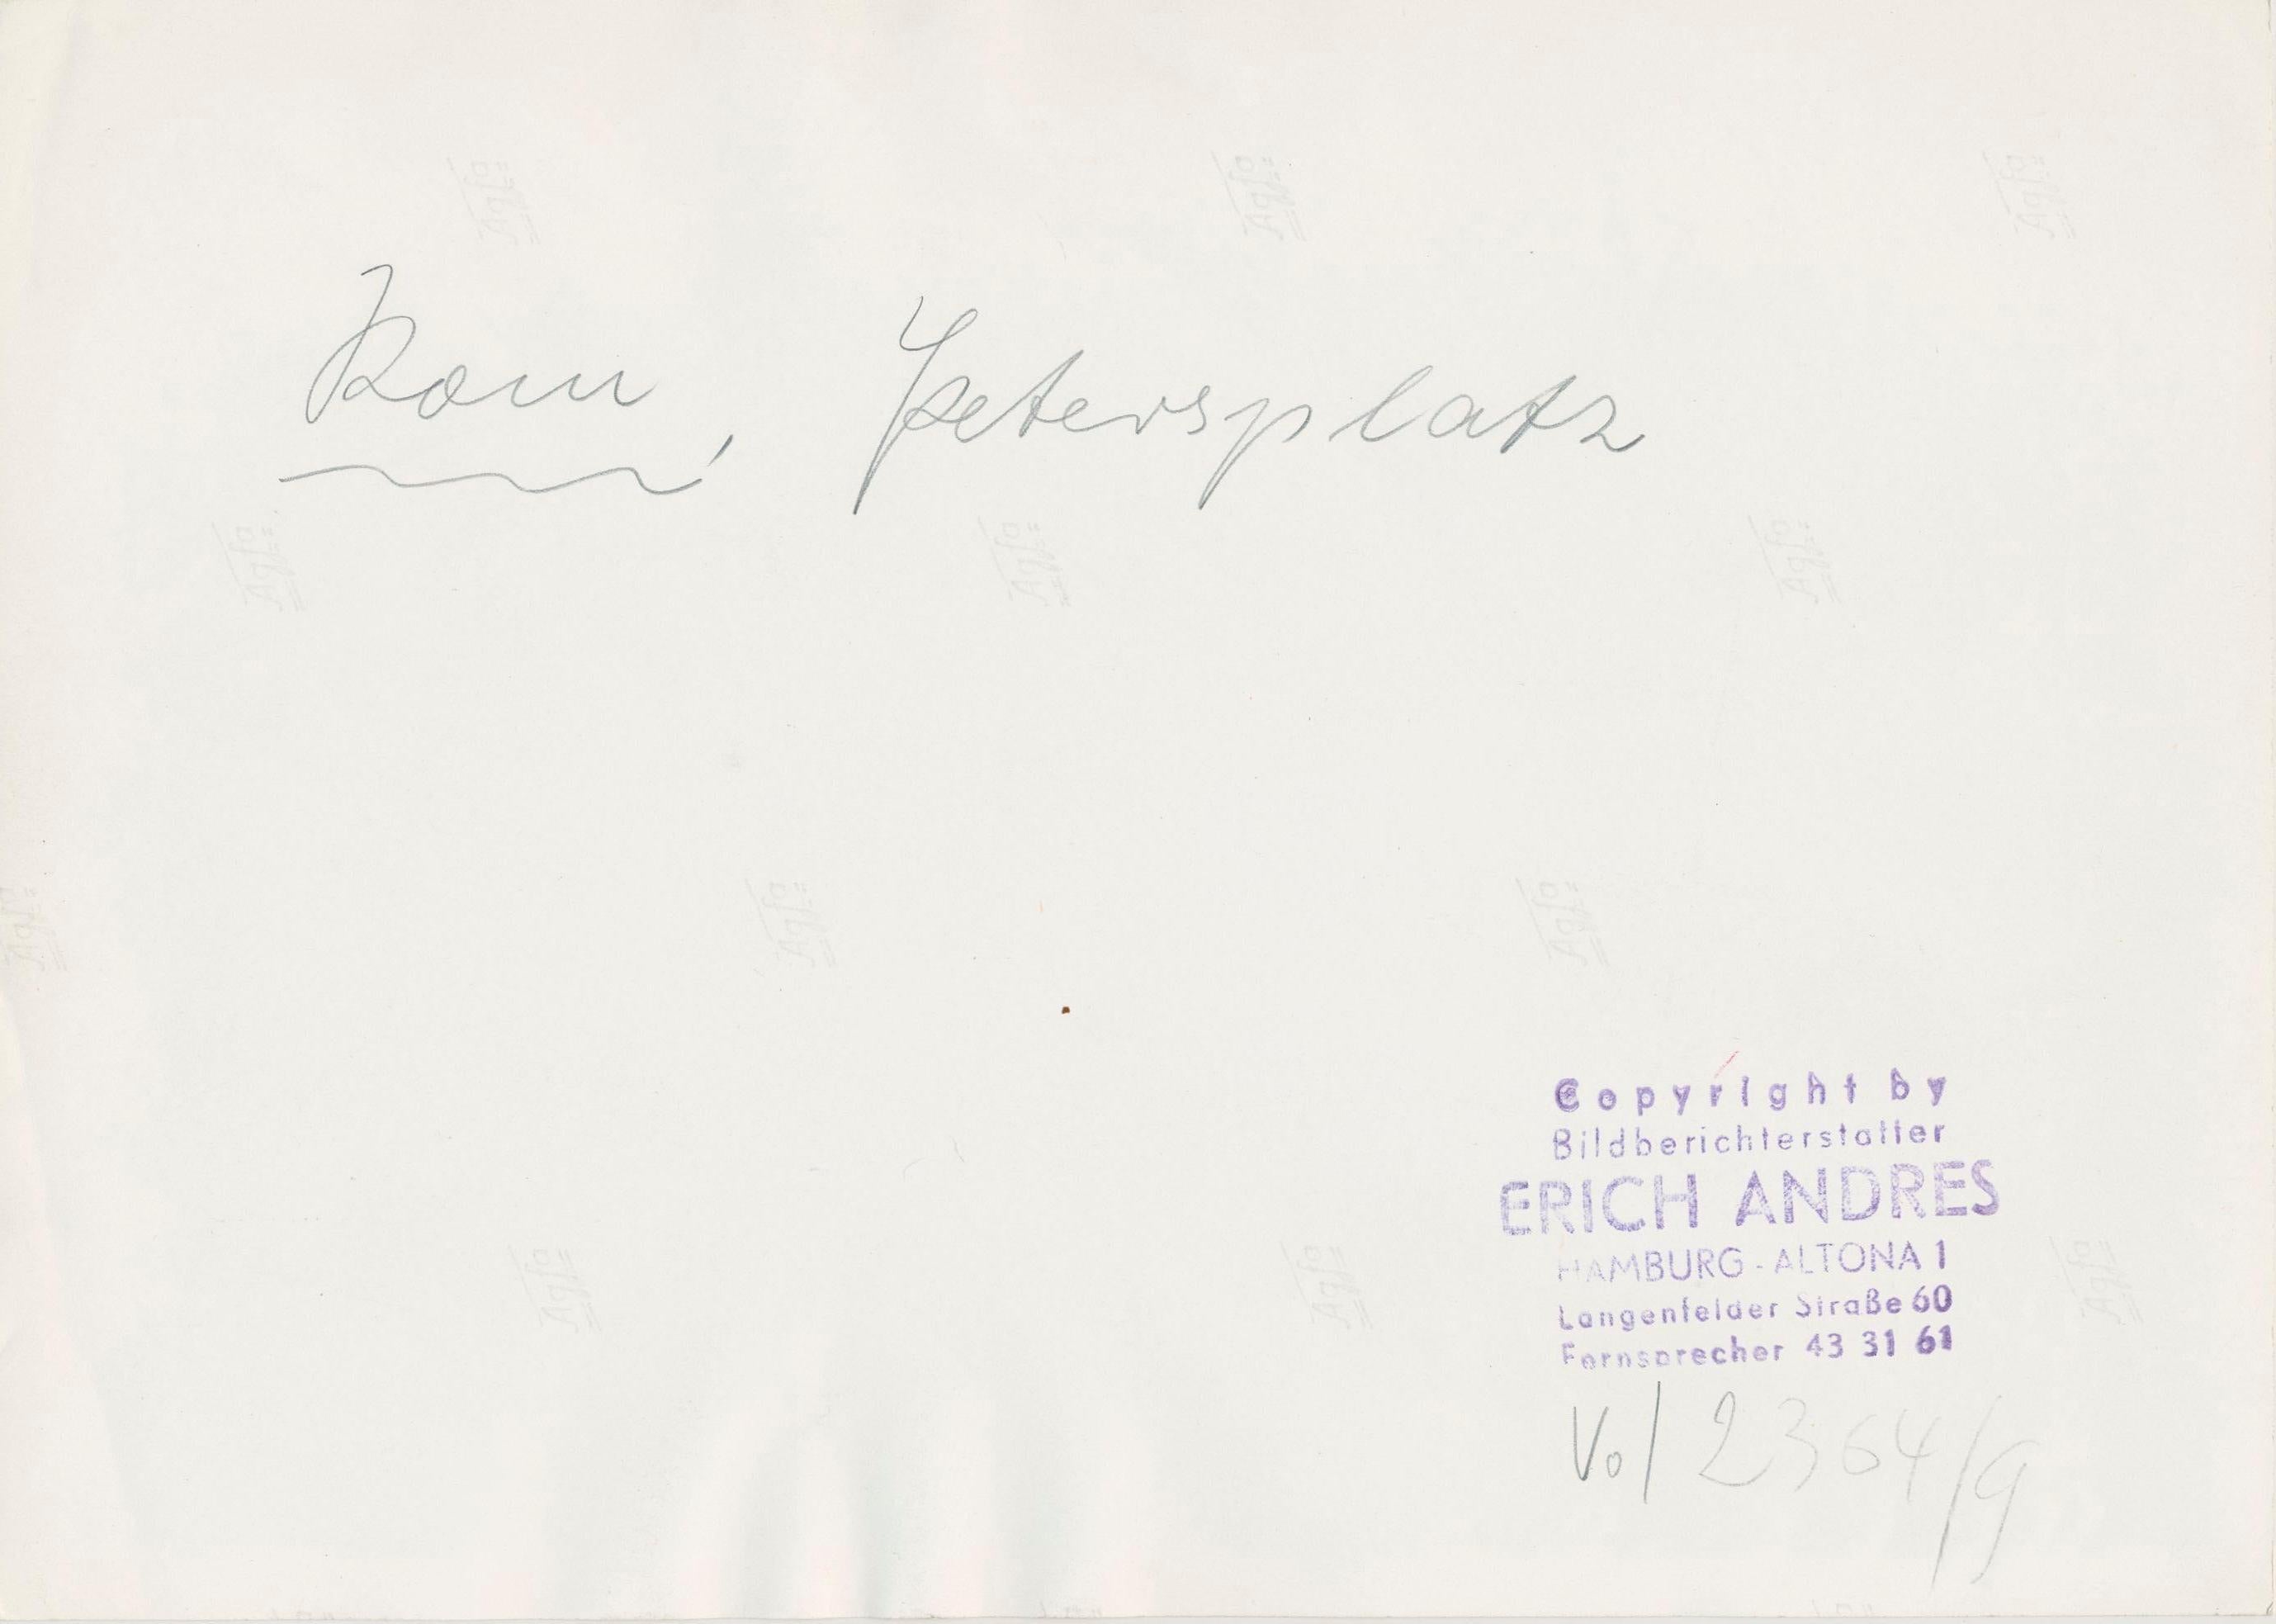 Agfa Agfa Agfa
Rom, Petersplatz
Agfa Agfa Agfa
Agfa Agfa Agfa
Copyright by
Bildberichterstatter
ERICH ANDRES
HAMBURG-ALTONA 1
Langenfelder Straße 60
Fernsprecher 43 31 61
Agfa Agfa Agfa
Vo/ 2364/9